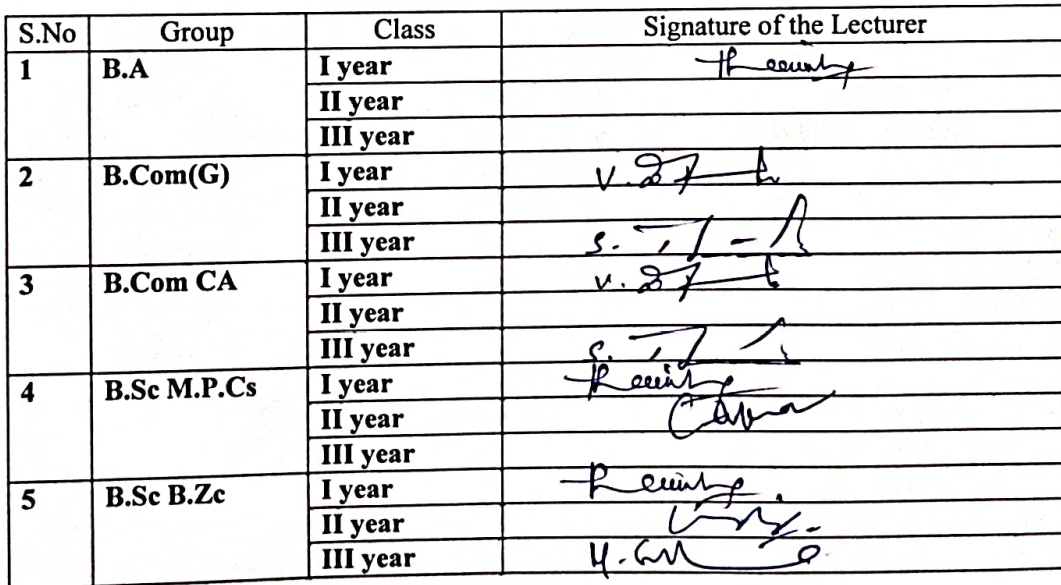 S.No Group Class Signature of the Lecturer
1 B.A I year
II year
III year
2 B.Com(G) I year V.
II year
III year S.
3 B.Com CA I year V.
II year
III year S.
4 B.Sc M.P.Cs I year
II year
III year
5 B.Sc B.Zc I year
II year
III year